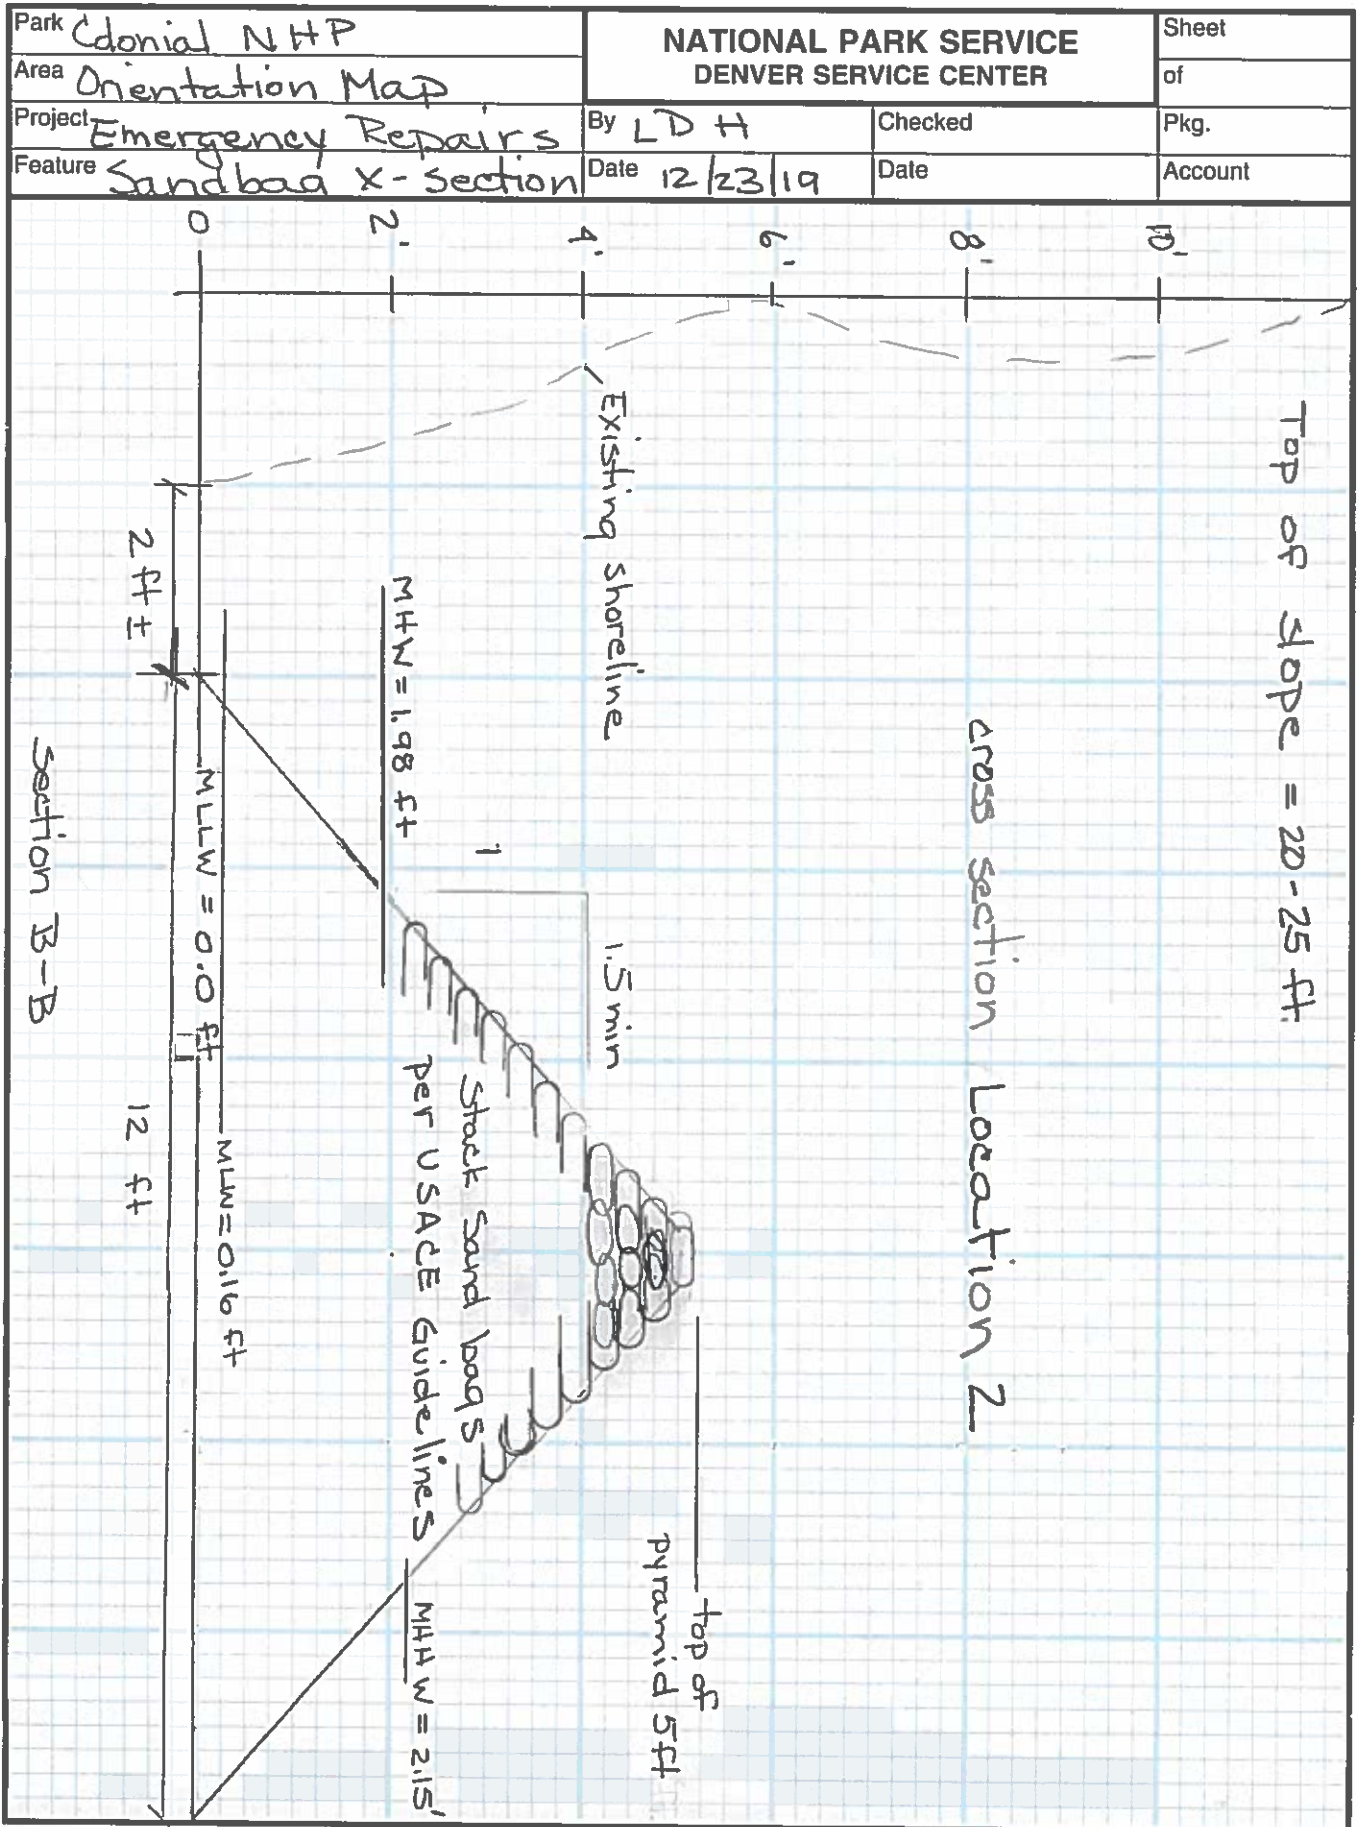 Park Colonial NHP
Area Orientation Map
Project Emergency Repairs
Feature Sandbag X-section
NATIONAL PARK SERVICE
DENVER SERVICE CENTER
By LDH
Checked
Date 12/23/19
Date
Sheet
of
Pkg.
Account
Top of slope = 20-25 ft.
10'
8'
6'
4'
2'
0
cross section Location 2
Existing shoreline
1.5 min
1
top of
pyramid 5ft
MHW = 1.98 ft
Stack Sand bags
per USACE Guidelines
MHHW = 2.15'
MLW = 0.16 ft
MLLW = 0.0 ft
2 ft ±
12 ft
Section B-B